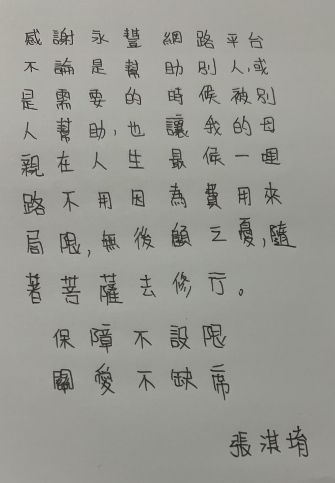 感謝永豐網路平台
不論是幫助別人,或
是需要的時候被別
人幫助,也讓我的母
親在人生最候一哩
路不用因為費用來
局限,無後顧之憂,隨
著菩薩去修行。
保障不設限
關愛不缺席
張淇堉